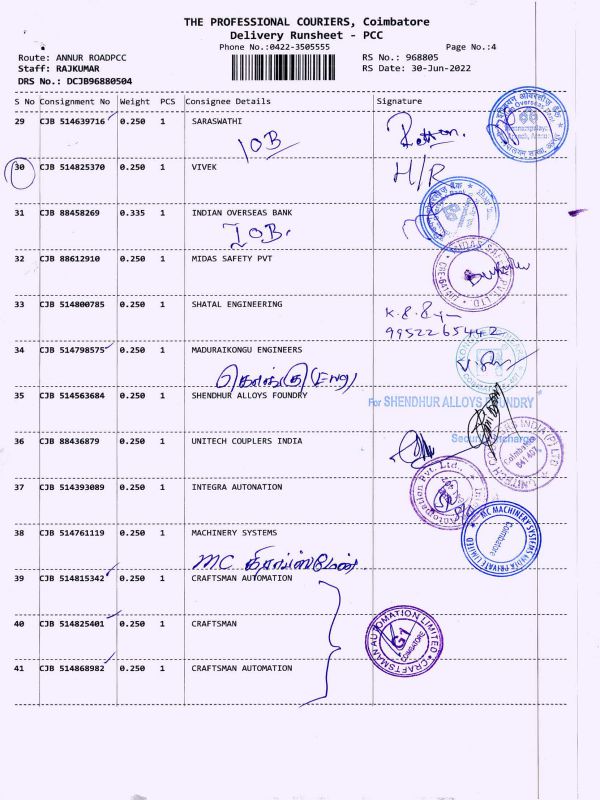 THE PROFESSIONAL COURIERS, Coimbatore
Delivery Runsheet - PCC
Phone No.:0422-3505555
Page No.:4
Route: ANNUR ROADPCC
RS No.: 968805
Staff: RAJKUMAR
RS Date: 30-Jun-2022
DRS No.: DCJB96880504
S No Consignment No Weight PCS Consignee Details Signature
29 CJB 514639716 0.250 1 SARASWATHI
IOB
30 CJB 514825370 0.250 1 VIVEK
H/R
31 CJB 88458269 0.335 1 INDIAN OVERSEAS BANK
IOB.
32 CJB 88612910 0.250 1 MIDAS SAFETY PVT
33 CJB 514800785 0.250 1 SHATAL ENGINEERING
9952265442
34 CJB 514798575 0.250 1 MADURAIKONGU ENGINEERS
(Eng)
35 CJB 514563684 0.250 1 SHENDHUR ALLOYS FOUNDRY
For SHENDHUR ALLOYS FOUNDRY
36 CJB 88436879 0.250 1 UNITECH COUPLERS INDIA
37 CJB 514393089 0.250 1 INTEGRA AUTONATION
38 CJB 514761119 0.250 1 MACHINERY SYSTEMS
MC MACHINERY SYSTEMS INDIA PRIVATE LIMITED
Coimbatore
MC
39 CJB 514815342 0.250 1 CRAFTSMAN AUTOMATION
40 CJB 514825401 0.250 1 CRAFTSMAN
CRAFTSMAN AUTOMATION LIMITED
G1
COIMBATORE
41 CJB 514868982 0.250 1 CRAFTSMAN AUTOMATION